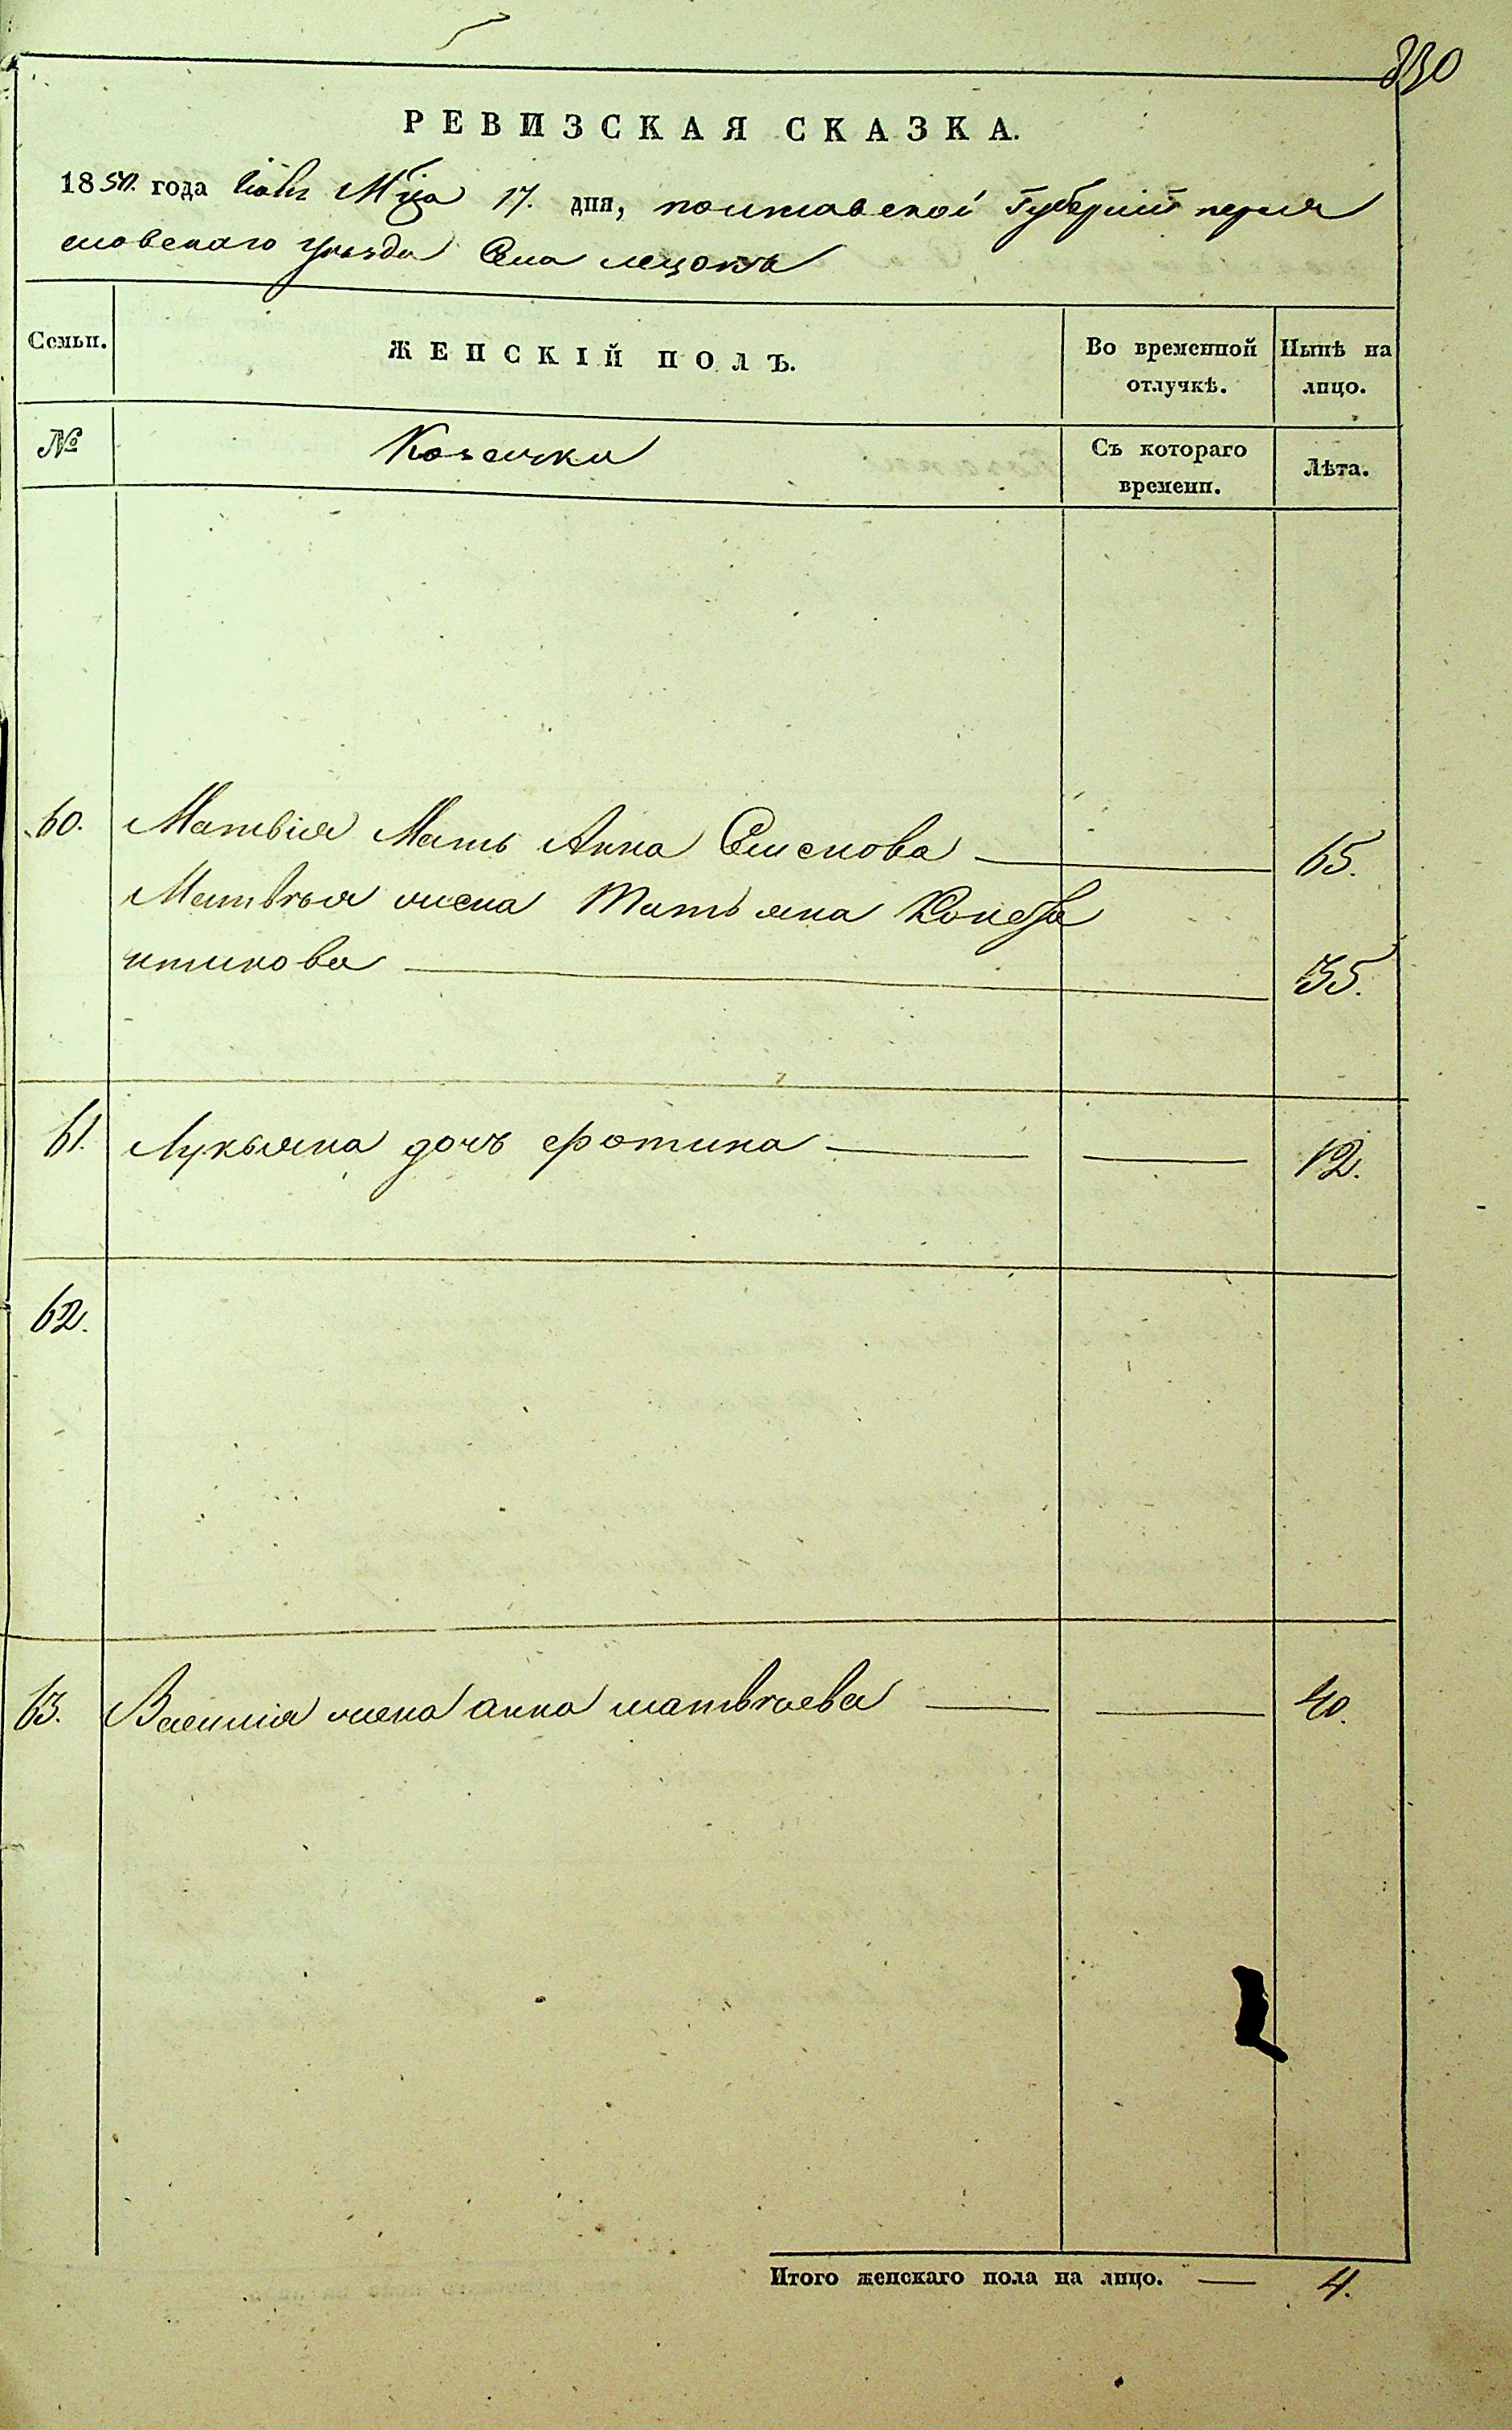 830
РЕВИЗСКАЯ СКАЗКА.
1850. года Мця 17. дня, полтавской Губерніи переяс
ловскаго уезда Села лецокъ
Семьи.
ЖЕНСКІЙ ПОЛЪ.
Во временной отлучкѣ.
Нынѣ на лицо.
№
Козачки
Съ котораго времени.
Лѣта.
60. Матвія Мать Анна Семенова 65.
Матвѣя жена Татьяна Конста
нтинова 35.
61. Лукьяна дочь фотина 12.
62.
63. Василія жена анна матвѣева 40.
Итого женскаго пола на лицо. — 4.